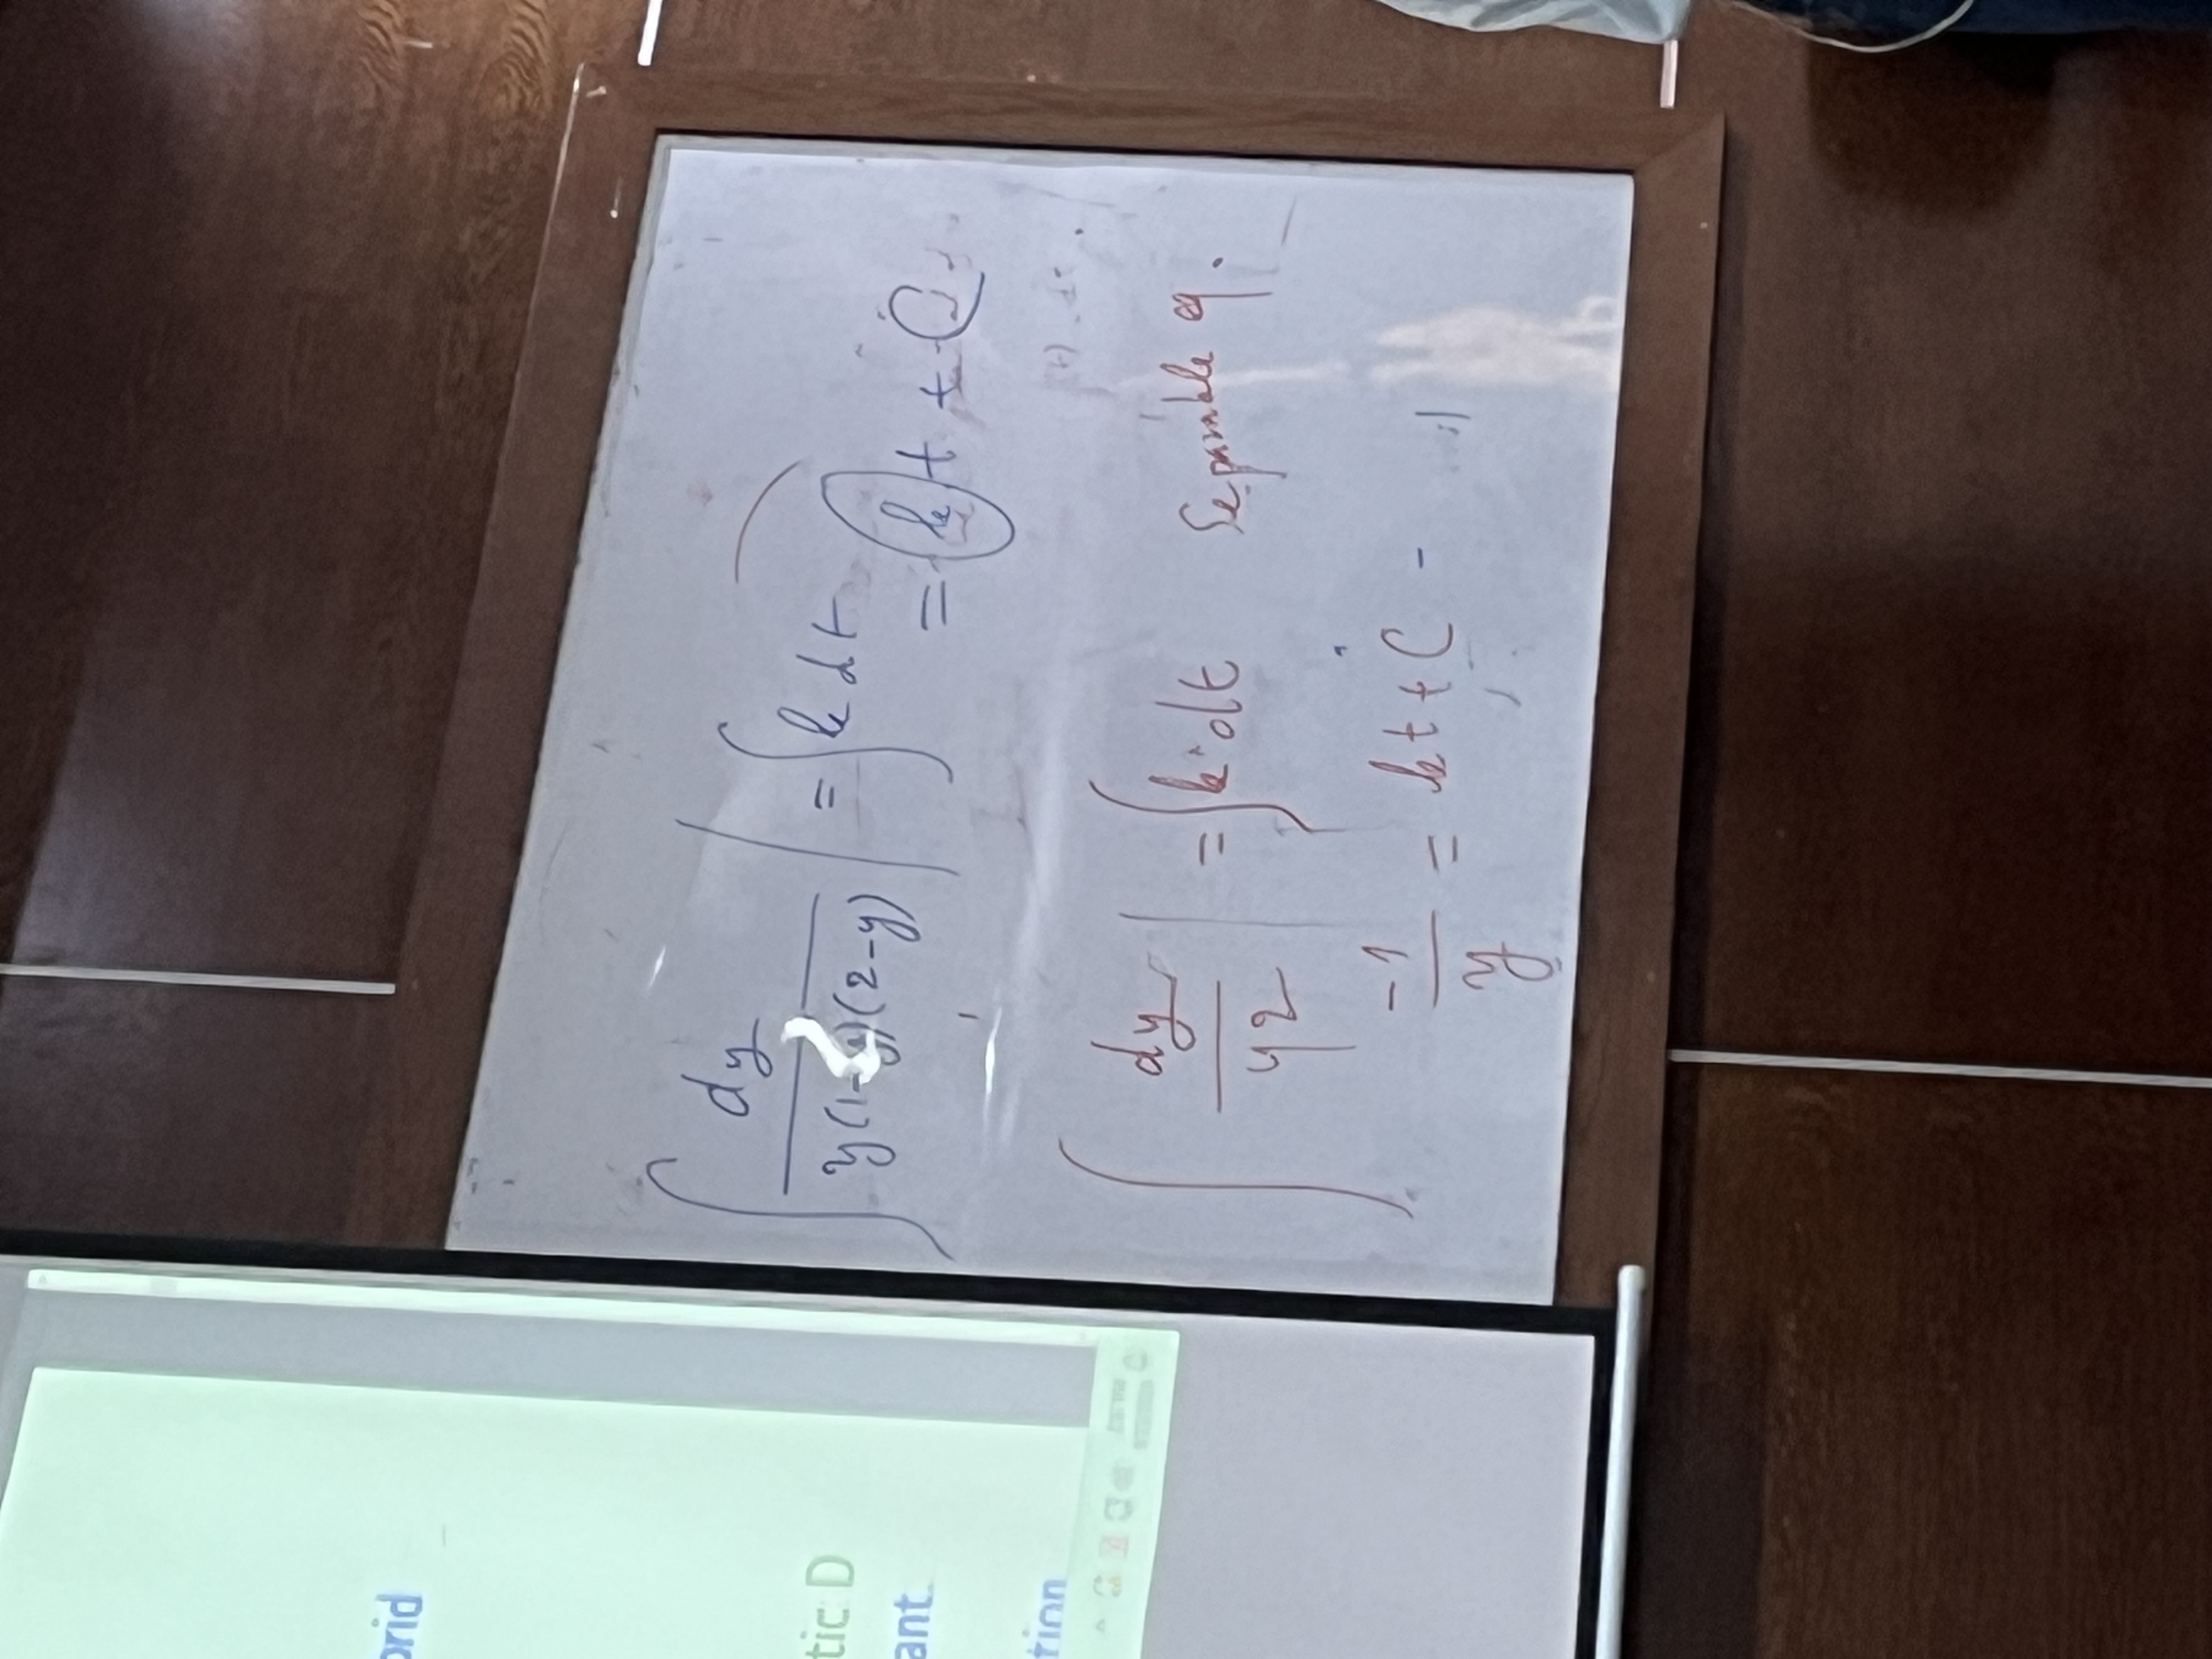 brid
tic D
ant.
tion
∫ dy / y(1-y)(2-y) | = ∫ k dt
= k t + C
∫ dy / y2 | = ∫ k dt Separable eq.
-1 / y = kt + C -